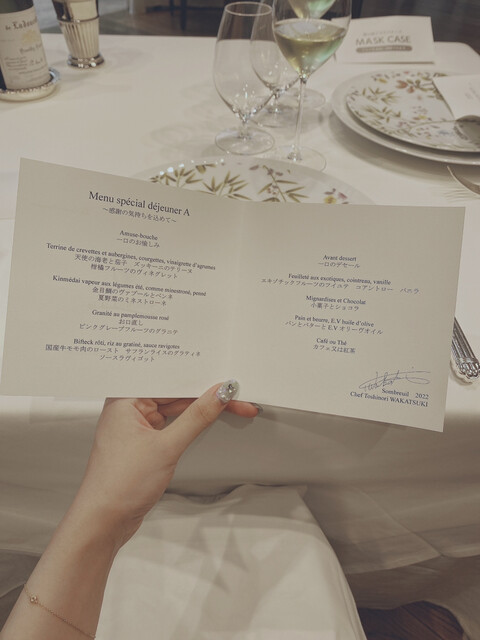 MASK CASE
Menu spécial déjeuner A
〜感謝の気持ちを込めて〜
Amuse-bouche
一口のお愉しみ
Terrine de crevettes et aubergines, courgettes, vinaigrette d'agrumes
天使の海老と茄子 ズッキーニのテリーヌ
柑橘フルーツのヴィネグレット
Kinmédai vapeur aux légumes été, comme minestrone, penne
金目鯛のヴァプールとペンネ
夏野菜のミネストローネ
Granité au pamplemousse rosé
お口直し
ピンクグレープフルーツのグラニテ
Bifteck rôti, riz au gratiné, sauce ravigotte
国産牛モモ肉のロースト サフランライスのグラティネ
ソースラヴィゴット
Avant dessert
一口のデセール
Feuilleté aux exotiques, cointreau, vanille
エキゾチックフルーツのフイユテ コアントロー バニラ
Mignardises et Chocolat
小菓子とショコラ
Pain et beurre, E.V huile d'olive
パンとバターとE.V オリーヴオイル
Café ou Thé
カフェ又は紅茶
Sombreuil 2022
Chef Toshinori WAKATSUKI